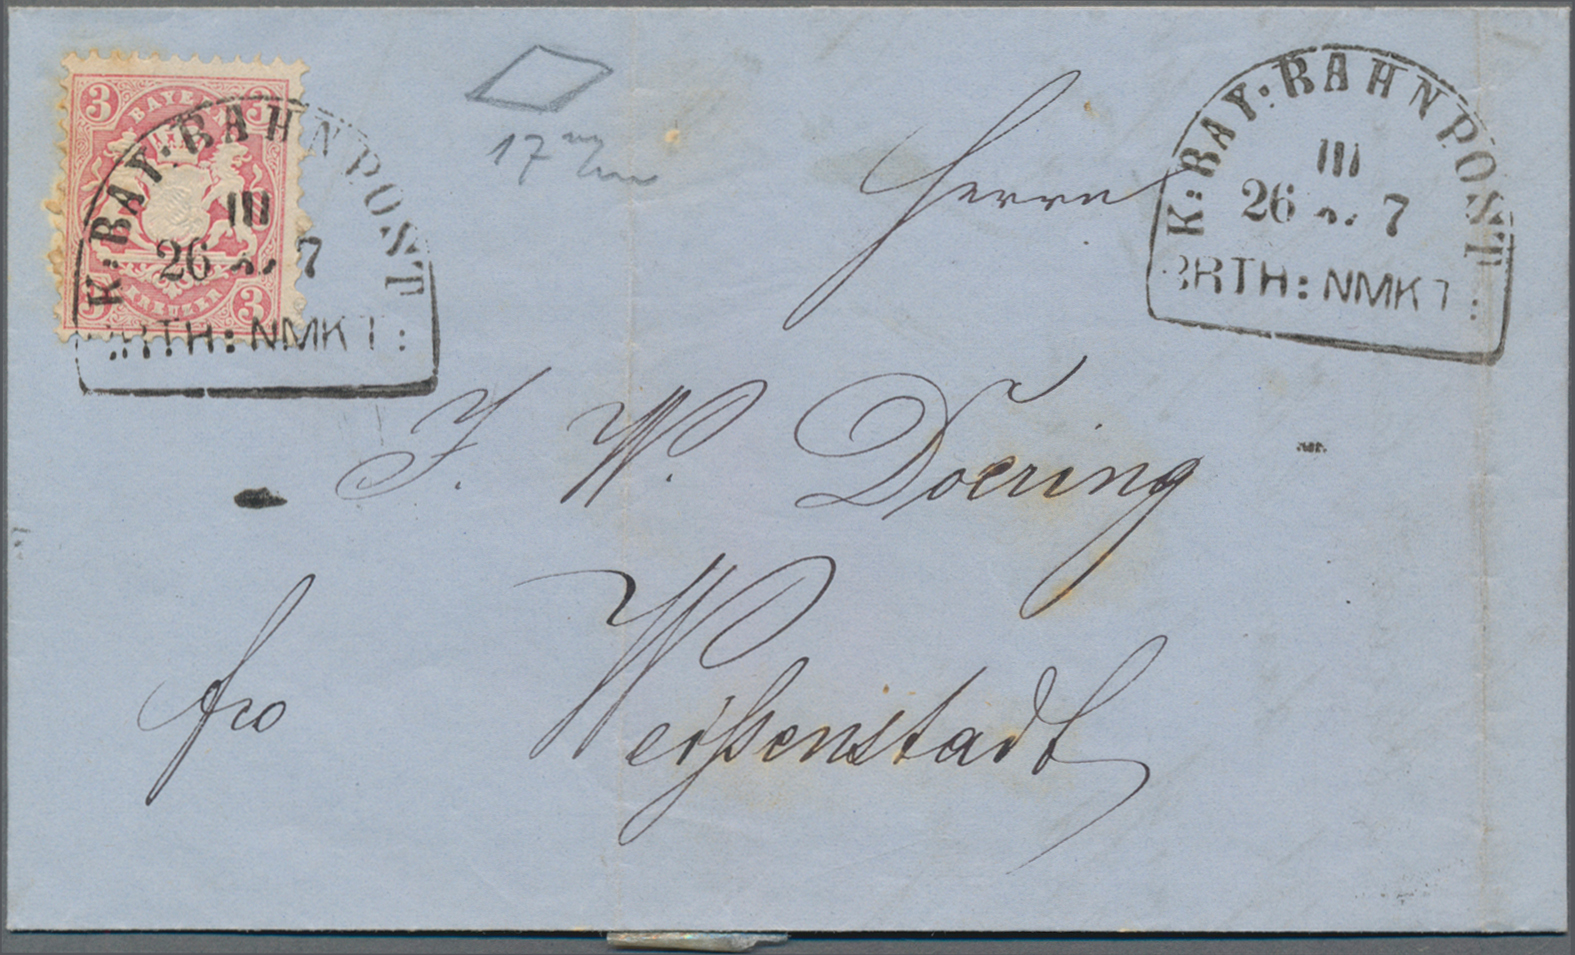 3 BAYERN 3
3 KREUZER 3
K: BAY: BAHNPOST
III
26 7
BRTH: NMKT:
17 m/m
K: BAY: BAHNPOST
III
26 7
BRTH: NMKT:
Herrn
J. W. Doering
fco
Weißenstadt